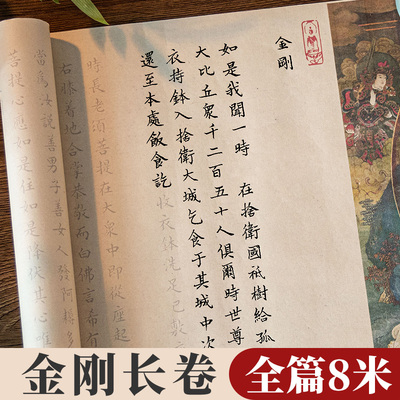 金剛
如是我聞一時 在捨衛國祗樹給孤
大比丘衆千二百五十人俱爾時世尊
衣持鉢入捨衛大城乞食于其城中次
還至本處飯食訖 收衣鉢洗足已敷
時長老須菩提在大衆中即從座起
右膝着地合掌恭敬而白佛言希有
當爲汝說善男子善女人發阿耨多
菩提心應如是住如是降伏其心
金刚长卷
全篇8米